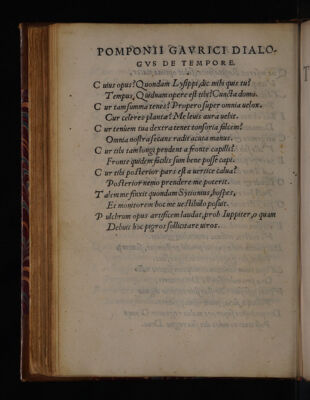 POMPONII GAVRICI DIALO-
GVS DE TEMPORE.
Cuius opus? Quondam Lysippi, dic mihi quis tu?
Tempus, Quidnam opere est tibi? Cuncta domo.
Cur tam summa tenes? Propero super omnia uelox.
Cur celeres plantæ? Me leuis aura uehit.
Cur tenuem tua dextra tenet tonsoria falcem?
Omnia nostra secans radit acuta manus.
Cur tibi tam longi pendent a fronte capilli?
Fronte quidem facilis sum bene posse capi.
Cur tibi posterior pars est a uertice calua?
Posterior nemo prendere me poterit.
Talem me finxit quondam Sicionius, hospes,
Et monitorem hoc me uestibulo posuit.
Pulchrum opus artificem laudat, proh Iuppiter, o quam
Debuit hoc pigros sollicitare uiros.